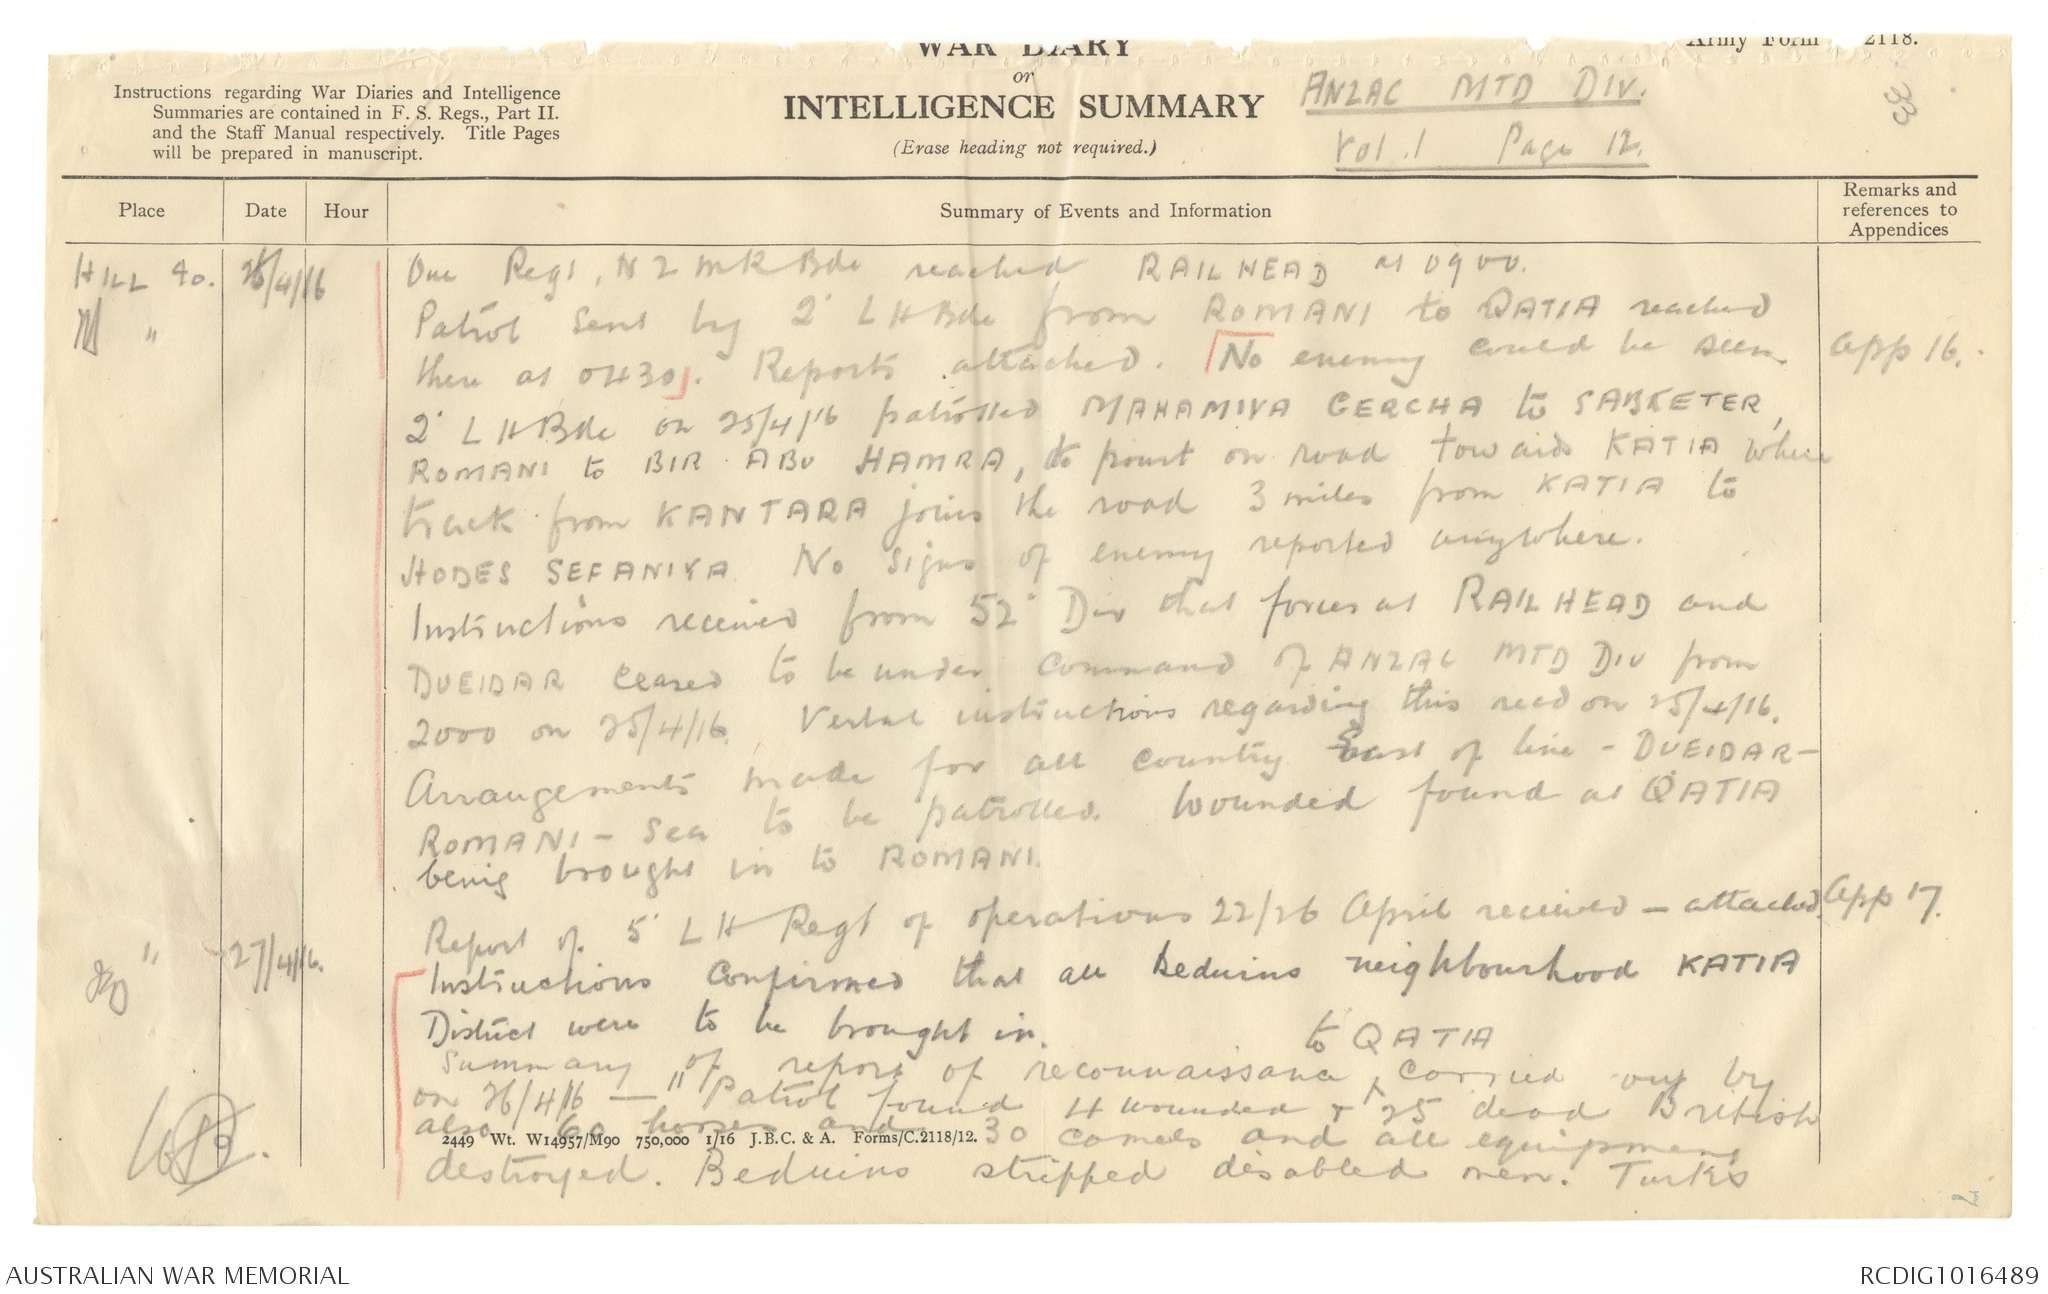 WAR DIARY
or
INTELLIGENCE SUMMARY
(Erase heading not required.)
Army Form 2118.
Instructions regarding War Diaries and Intelligence
Summaries are contained in F. S. Regs., Part II.
and the Staff Manual respectively. Title Pages
will be prepared in manuscript.
ANZAC MTD DIV.
Vol. 1 Page 12.
33
Place
Date
Hour
Summary of Events and Information
Remarks and
references to
Appendices
HILL 40. 26/4/16 One Regt, N Z M R Bde reached RAILHEAD at 0900.
" Patrol sent by 2' L H Bde from ROMANI to QATIA reached
there at 0430. Reports attached. No enemy could be seen. App 16.
2' L H Bde on 25/4/16 patrolled MAHAMIYA GERCHA to SABKETER,
ROMANI to BIR ABU HAMRA, to point on road towards KATIA where
track from KANTARA joins the road 3 miles from KATIA to
HODES SEFANIYA. No signs of enemy reported anywhere.
Instructions received from 52' Div that forces at RAILHEAD and
DUEIDAR ceased to be under command of ANZAC MTD DIV from
2000 on 25/4/16. Verbal instructions regarding this recd on 25/4/16.
Arrangements made for all country East of line - DUEIDAR -
ROMANI - Sea to be patrolled. Wounded found at QATIA
being brought in to ROMANI.
Report of 5' L H Regt of operations 22/26 April received - attached. App 17.
" 27/4/16. Instructions confirmed that all Beduins neighbourhood KATIA
District were to be brought in.
to QATIA
Summary of report of reconnaissance carried out by
on 26/4/16 - " Patrol found 4 wounded + 25 dead British
also 60 horses and 30 camels and all equipment
2449 Wt. W14957/M90 750,000 1/16 J.B.C. & A. Forms/C.2118/12.
destroyed. Beduins stripped disabled men. Turks
AUSTRALIAN WAR MEMORIAL
RCDIG1016489